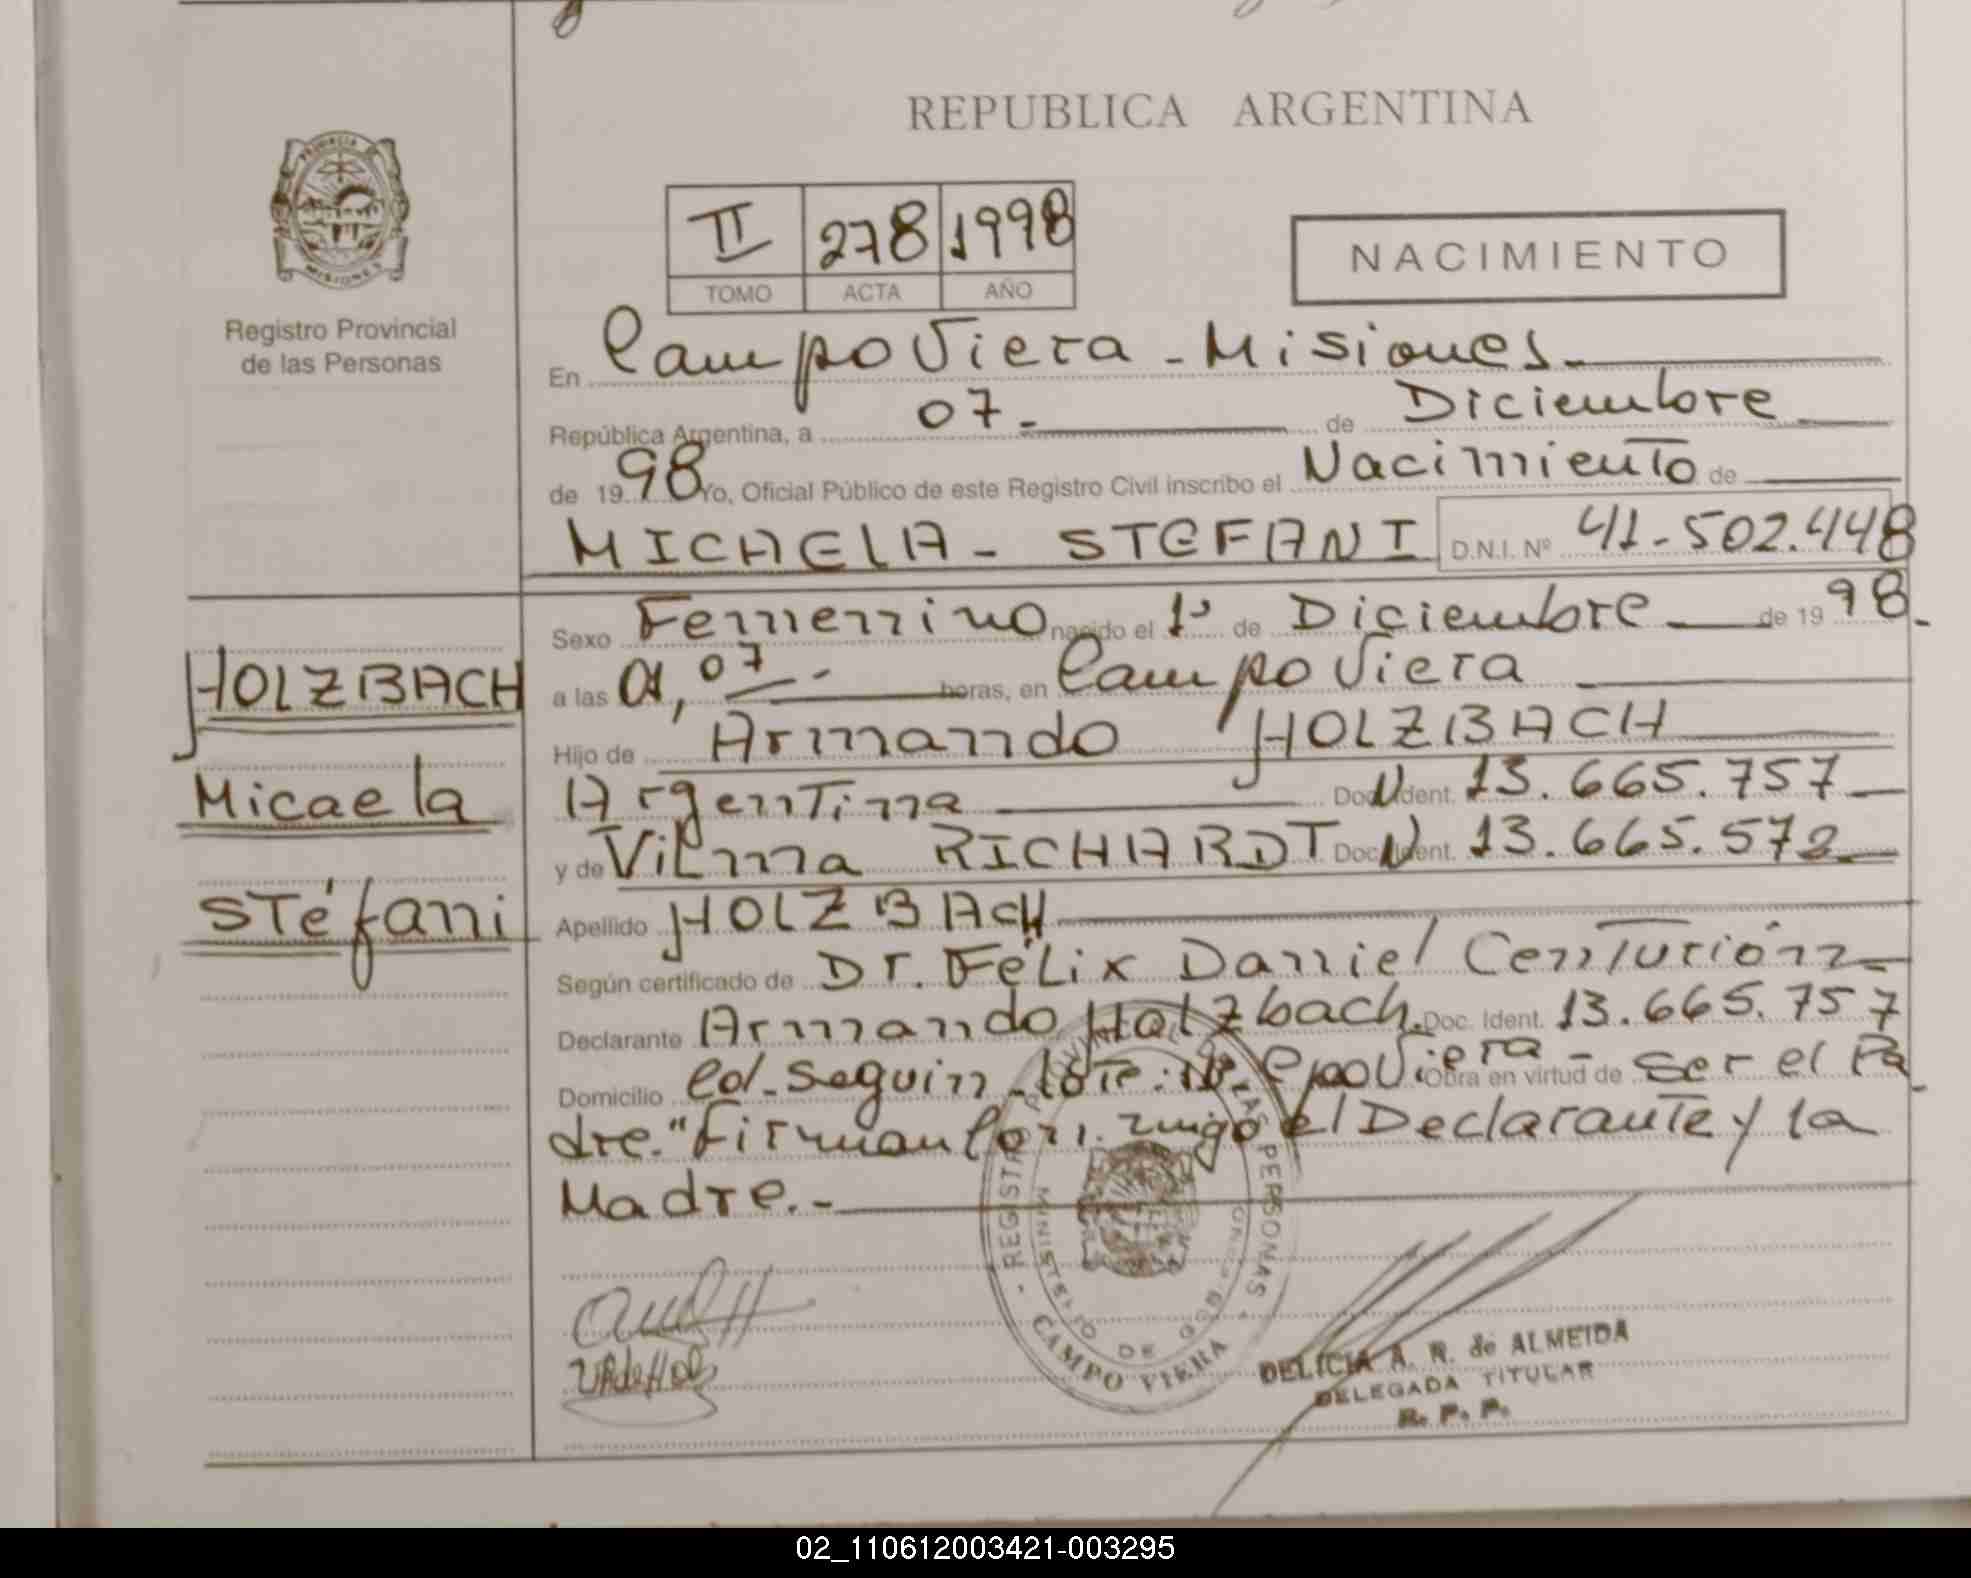 REPUBLICA ARGENTINA
PROVINCIA DE MISIONES
Registro Provincial
de las Personas
II 278 1998
TOMO ACTA AÑO
NACIMIENTO
En Campo Viera - Misiones.
República Argentina, a 07.- de Diciembre
de 1998 Yo, Oficial Público de este Registro Civil inscribo el Nacimiento de
MICAELA - STEFANI D.N.I. Nº 41-502.448
HOLZBACH
Micaela
Stéfani
Sexo Femenino nacido el 1º de Diciembre de 1998.
a las 01,07 - horas, en Campo Viera
Hijo de Armando HOLZBACH
Argentina Doc. Ident. 13.665.757
y de Vilma RICHARDT Doc. Ident. 13.665.572
Apellido HOLZBACH
Según certificado de Dr. Félix Daniel Centurión
Declarante Armando Holzbach. Doc. Ident. 13.665.757
Domicilio Col. Seguin - lote: Cpo Viera - Obra en virtud de ser el Pa
dre." Firman Con migo el Declarante y la
Madre.-
REGISTRO PROVINCIAL DE LAS PERSONAS
MINISTERIO DE GOB.
CAMPO VIERA
DELICIA A. R. de ALMEIDA
DELEGADA TITULAR
R. P. P.
02_110612003421-003295